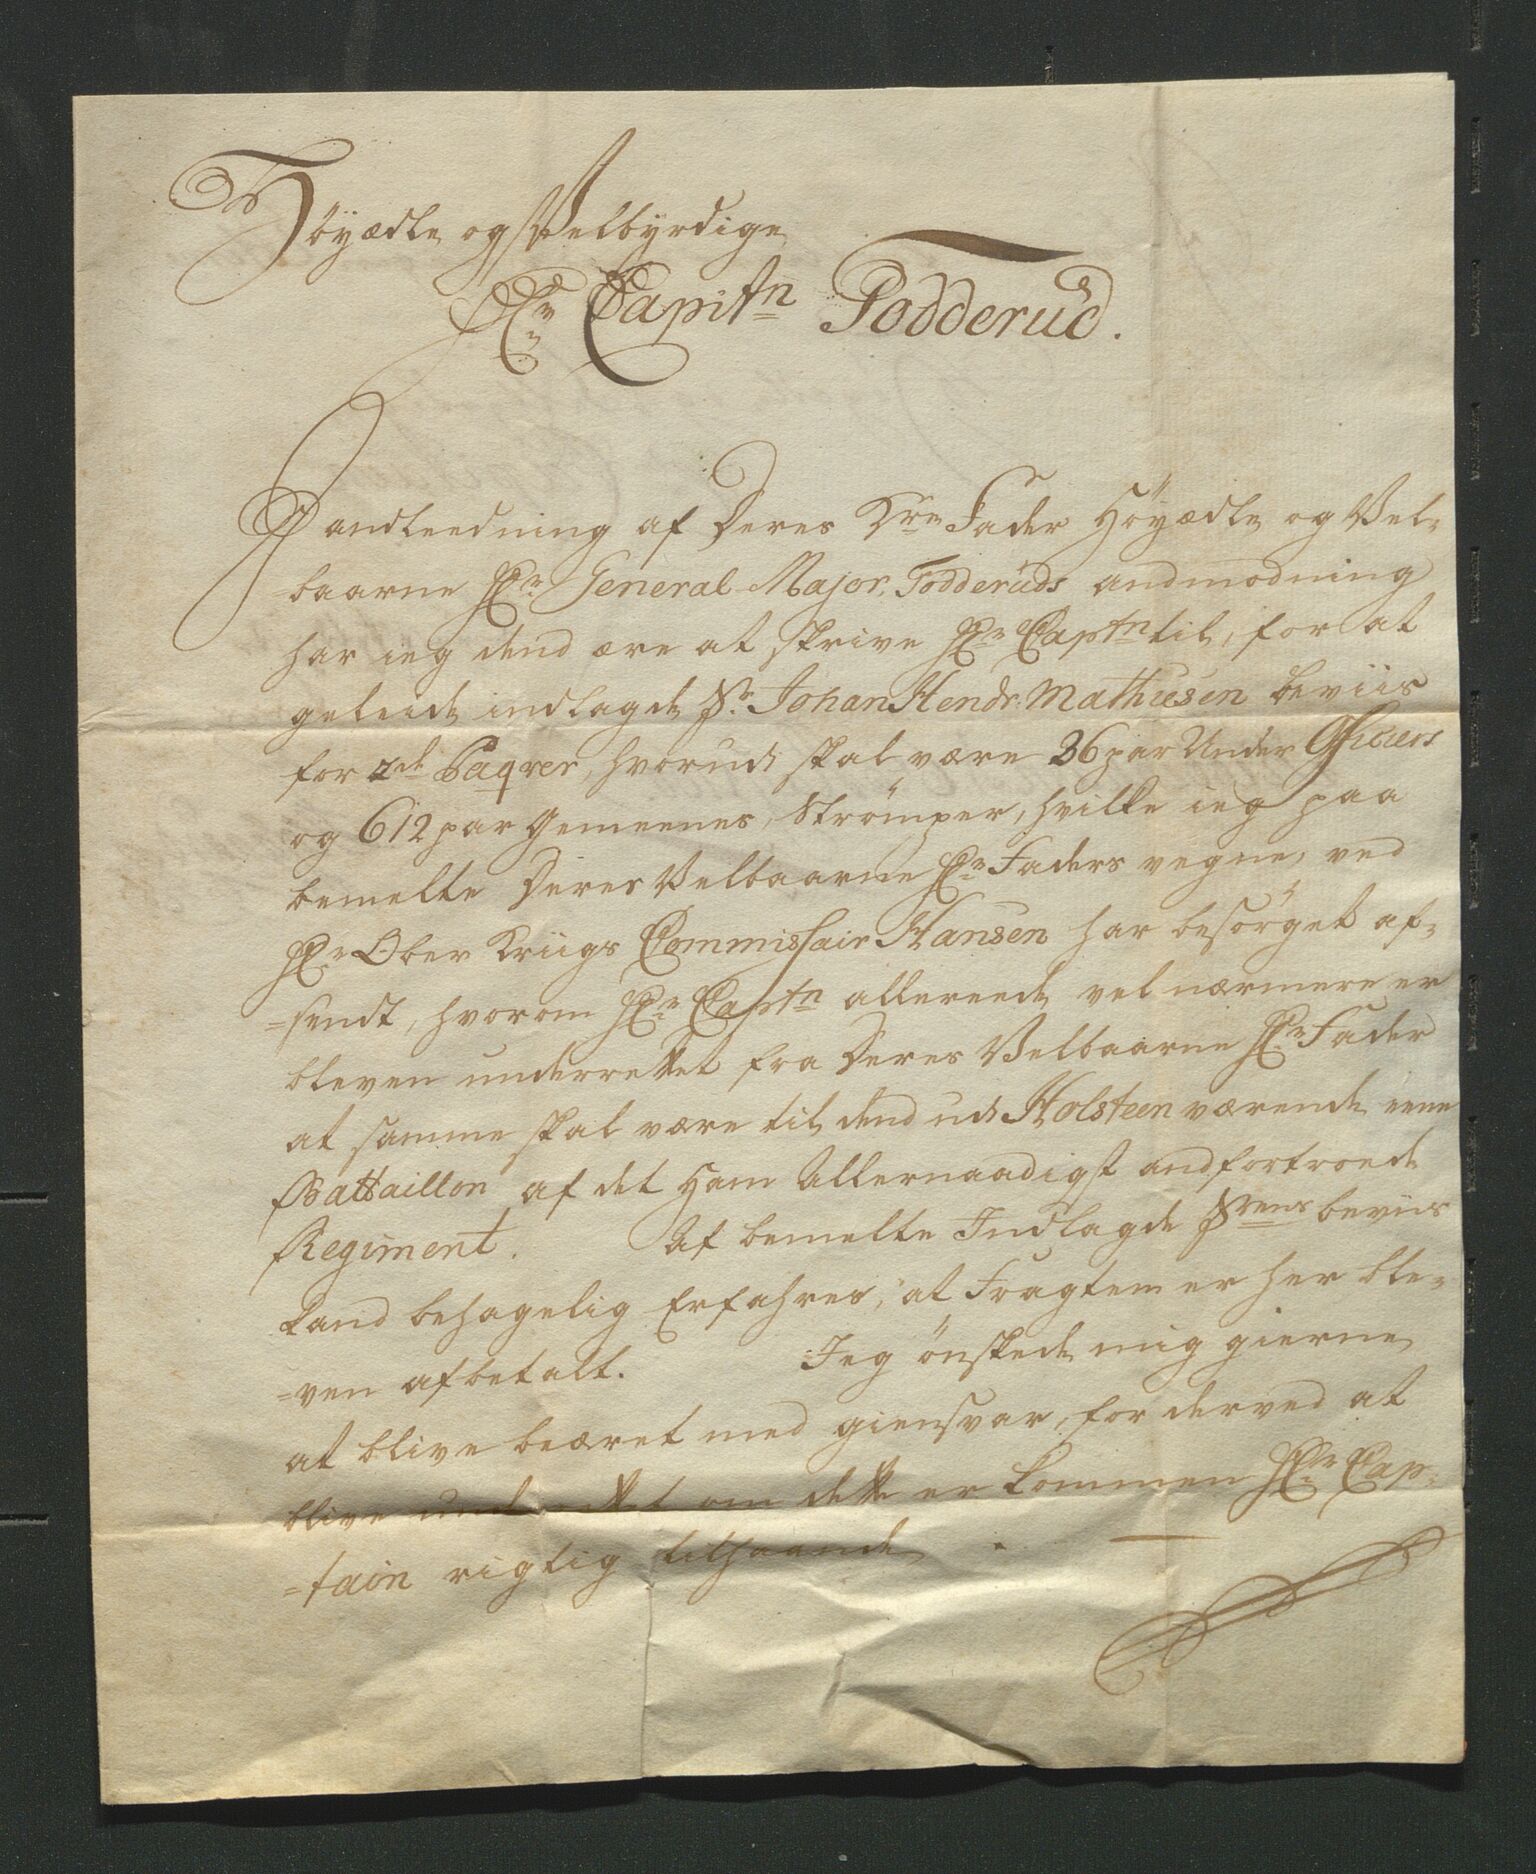 Höyædle og Velbyrdige
Hr Capitn Todderud.
J andleedning af Deres Kre Fader Höyædle og Vel-
baarne Hr General Major Todderuds andmodning
har ieg dend ære at skrive Hr Captn til, for at
geleide indlagde Sr. Johan Hendr: Mathiesen beviis
for 2de Paqver, hvorudi skal være 36 par Under Officiers
og 612 par Gemeenes Strömper, hvilke ieg paa
bemelte Deres Velbaarne Hr Faders vegne, ved
Hr Ober Kriigs Commissair Hansen har besörget af-
=sendt, hvorom Hr Captn allereede vel nærmere er
bleven underrettet fra Deres Velbaarne Hr Fader
at samme skal være til dend udi Holsteen værende eene
Battaillon af det Ham Allernaadigst andfortroede
Regiment. Af bemelte Indlagde Srens beviis
kand behagelig Erfahres, at Fragten er her ble-
=ven afbetalt. Jeg önskede mig gierne
at blive beæret med giensvar, for derved at
blive underrettet om dette er kommen Hr Cap-
=tain rigtig tilhaande.